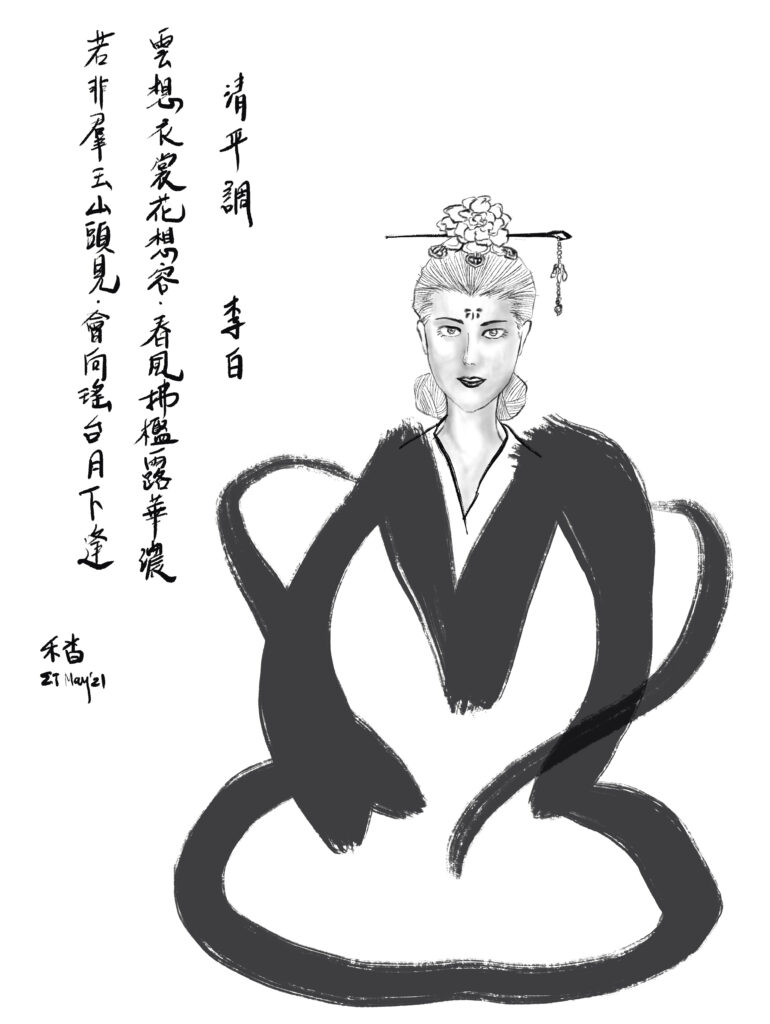 清平調 李白
雲想衣裳花想容.春風拂檻露華濃
若非羣玉山頭見.會向瑤台月下逢
ΣT May'21